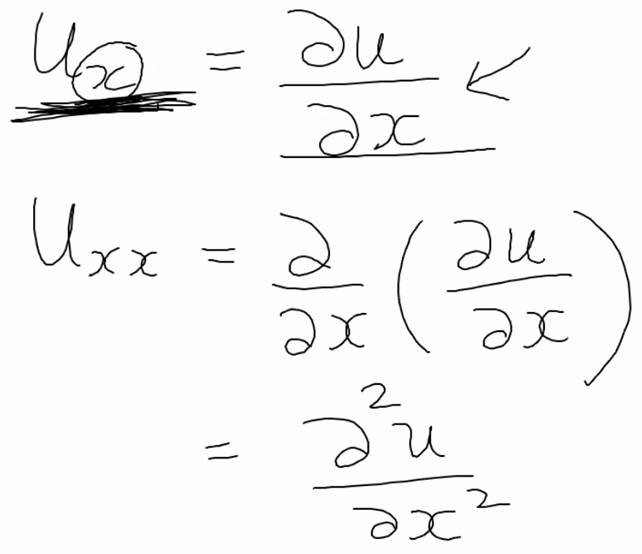 uₓ = ∂u/∂x
uₓₓ = ∂/∂x (∂u/∂x)
= ∂²u/∂x²